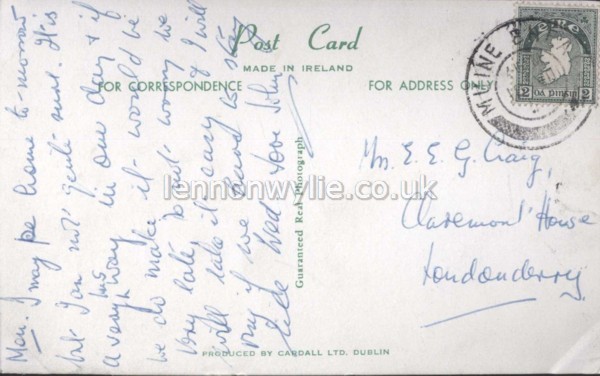 Post Card
MADE IN IRELAND
FOR CORRESPONDENCE
FOR ADDRESS ONLY
Mon. I may be home to-morrow
but I am not quite sure. It is
a long way in one day & if
we do make it it would be
very late, so don't worry we
will take it easy & I will
if we need to stay
love John
Guaranteed Real Photograph
PRODUCED BY CARDALL LTD, DUBLIN
E. E. G. Craig,
Claremont House
Londonderry
lennonwylie.co.uk